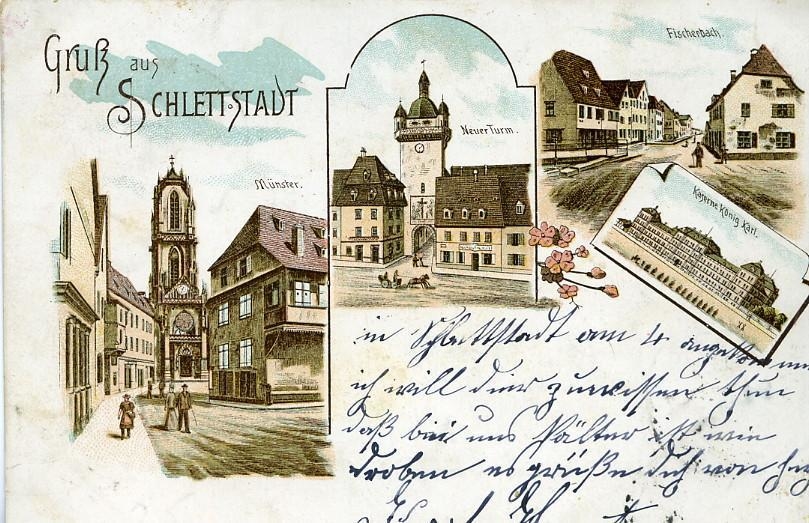 Gruß aus
SCHLETTSTADT
Münster.
Neuer Turm.
Fischerbach.
Kaserne König Karl.
in Schlettstadt am 4 angekommen
ich will dier zuwissen thun
daß bei uns kälter ist wie
droben es grüße dich von